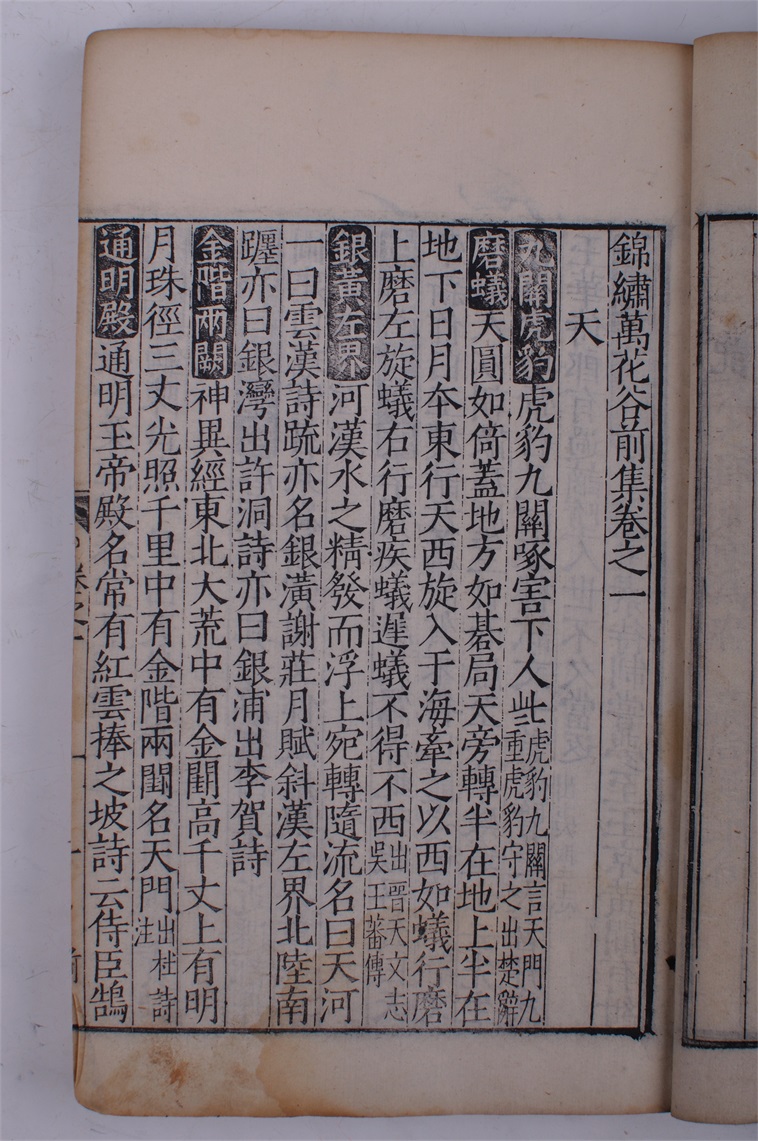 錦繡萬花谷前集卷之一
天
九關虎豹 虎豹九關啄害下人些 虎豹九關言天門九重虎豹守之出楚辭
磨蟻 天圓如倚蓋地方如碁局天旁轉半在地上半在
地下日月夲東行天西旋入于海牽之以西如蟻行磨
上磨左旋蟻右行磨疾蟻遲蟻不得不西 出晉天文志吳王蕃傳
銀黃左界 河漢水之精發而浮上宛轉隨流名曰天河
一曰雲漢詩䟽亦名銀潢謝莊月賦斜漢左界北陸南
躔亦曰銀灣出許洞詩亦曰銀浦出李賀詩
金階兩闕 神異經東北大荒中有金闕高千丈上有明
月珠徑三丈光照千里中有金階兩闕名天門 出杜詩注
通明殿 通明玉帝殿名常有紅雲捧之坡詩云侍臣鵠